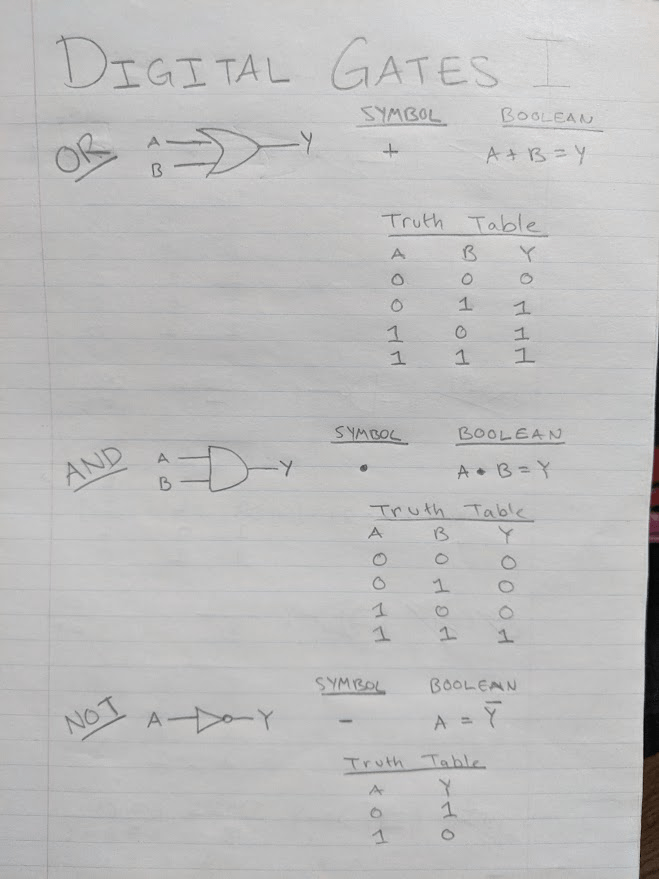 DIGITAL GATES I
SYMBOL BOOLEAN
OR A B Y + A + B = Y
Truth Table
A B Y
0 0 0
0 1 1
1 0 1
1 1 1
SYMBOL BOOLEAN
AND A B Y • A • B = Y
Truth Table
A B Y
0 0 0
0 1 0
1 0 0
1 1 1
SYMBOL BOOLEAN
NOT A Y – A = Y̅
Truth Table
A Y
0 1
1 0